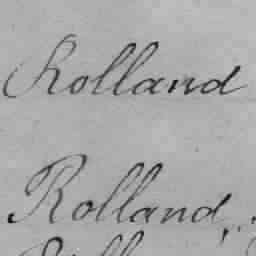 Rolland
Rolland,